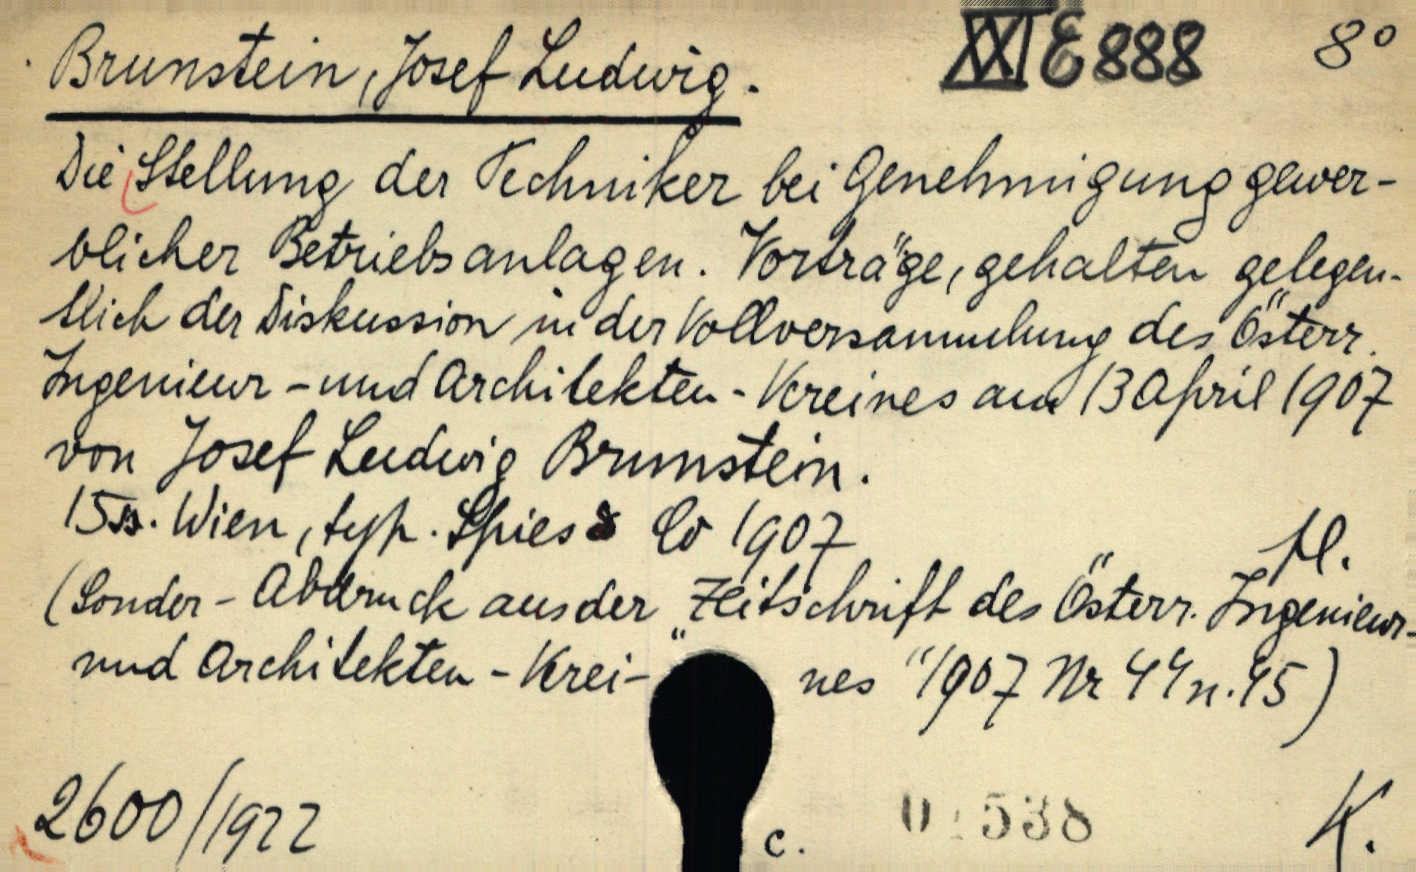 Brunstein, Josef Ludwig. XXI E 888 8°
Die Stellung der Techniker bei Genehmigung gewer-
blicher Betriebsanlagen. Vorträge, gehalten gelegen-
tlich der Diskussion in der Vollversammlung des Österr.
Ingenieur - und Architekten - Vereines am 13 April 1907
von Josef Ludwig Brunstein.
15 ss. Wien, typ. Spies & Co 1907
M.
(Sonder - Abdruck aus der "Zeitschrift des Österr. Ingenieur-
und Architekten - Verei- nes "1907 Nr 44 u. 45)
2600/1922 c. 538 K.